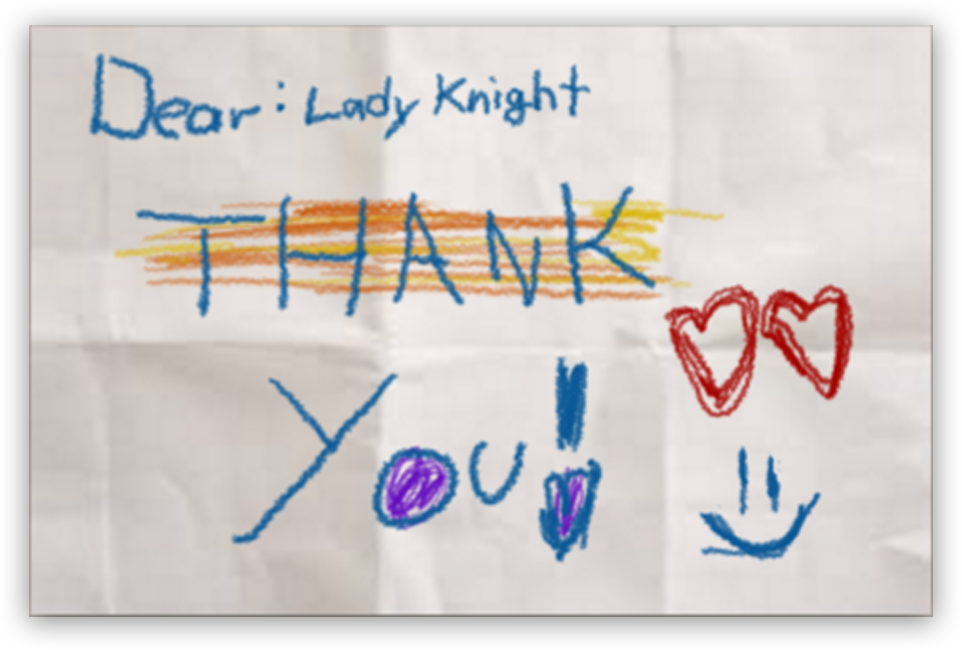 Dear: Lady Knight
THANK
You!